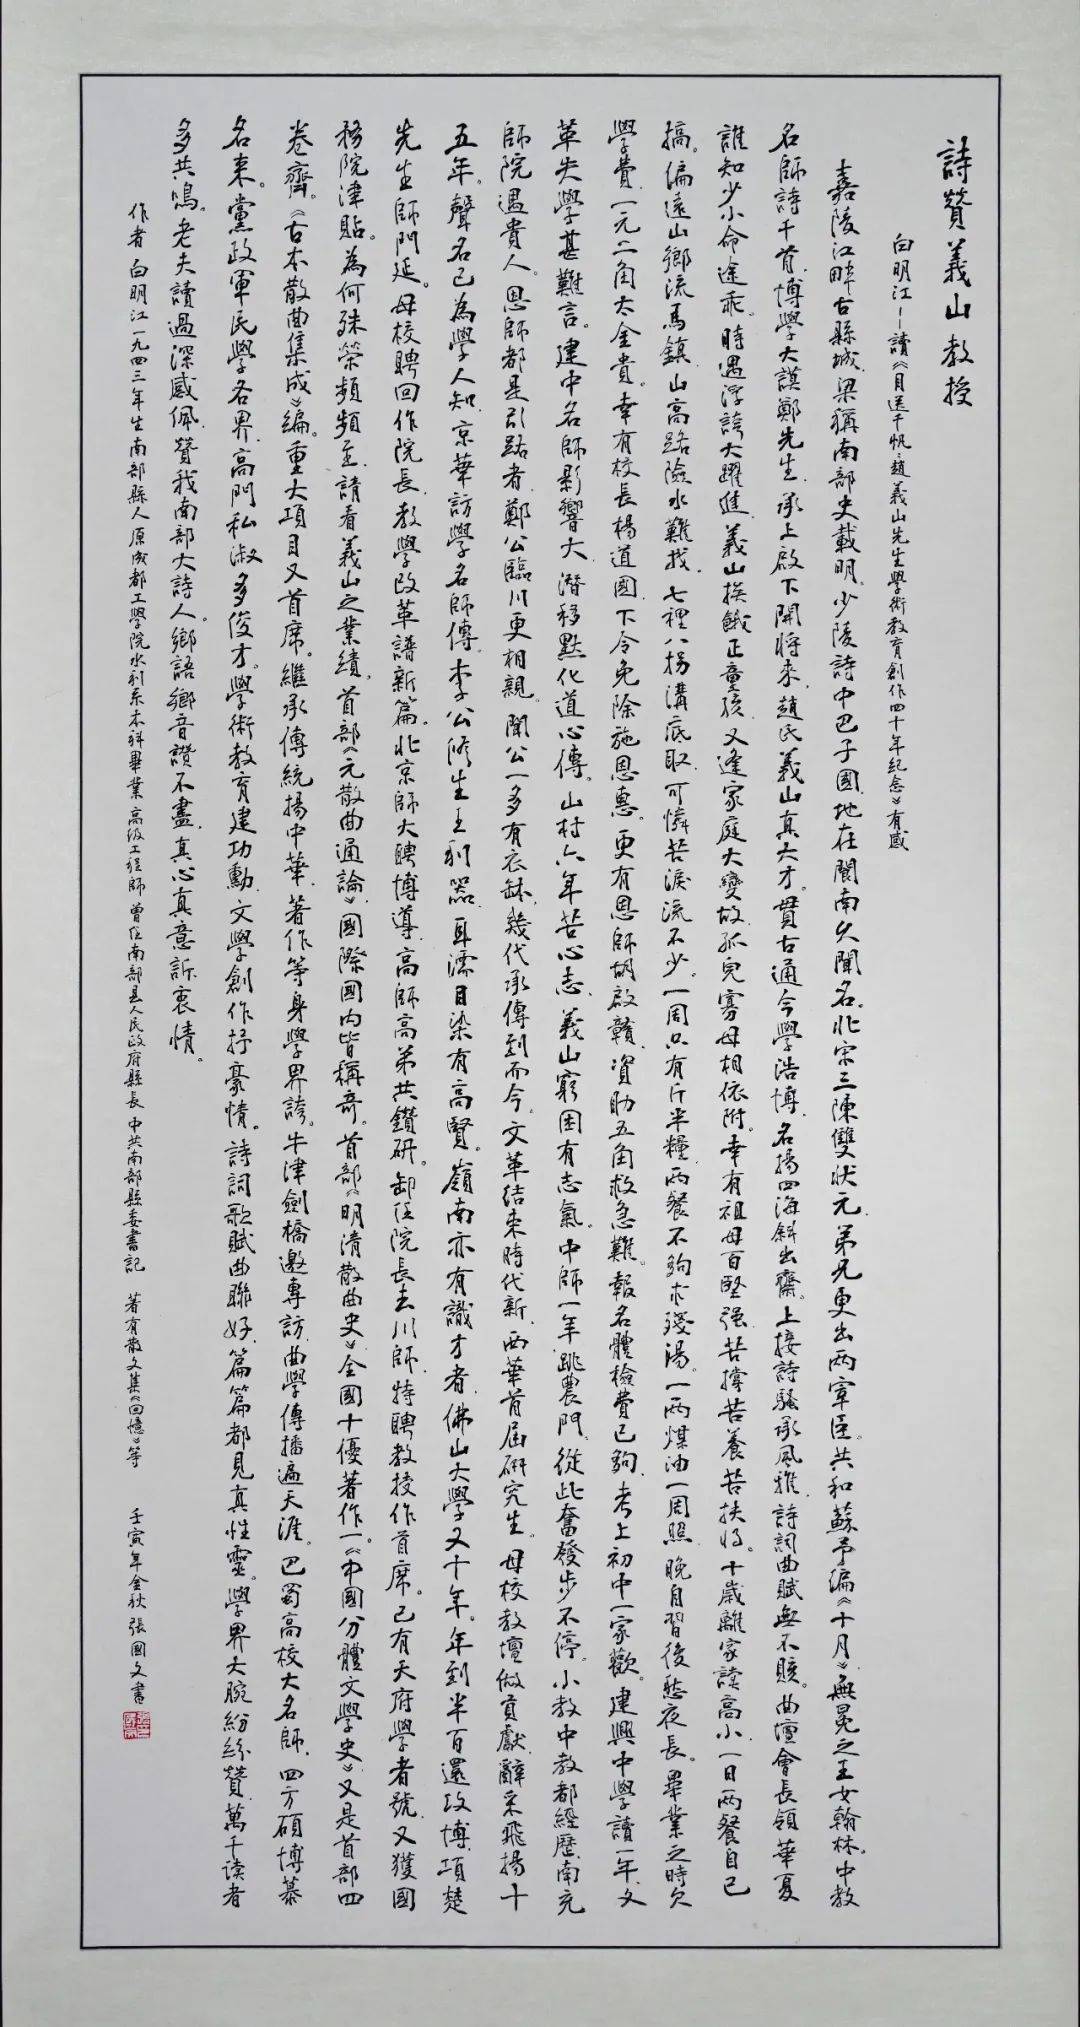 詩贊義山教授
白明江——讀《目送千帆·趙義山先生學術教育創作四十年紀念》有感
嘉陵江畔古縣城，梁稱南部史載明。少陵詩中巴子國，地在閬南久聞名。北宋三陳雙狀元，弟兄更出兩宰臣。共和蘇予編《十月》，無冕之王女翰林。中教
名師詩千首，博學大謨鄭先生，承上啟下開將來，趙氏義山真大才。貫古通今學浩博，名揚四海斜出齋。上接詩騷承風雅，詩詞曲賦無不賅。曲壇會長領華夏，
誰知少小命途乖。時遇浮誇大躍進，義山挨餓正童孩，又逢家庭大變故，孤兒寡母相依附。幸有祖母百堅强，苦撐苦養苦扶將。十歲離家讀高小，一日兩餐自己
搞。偏遠山鄉流馬鎮，山高路險水難找，七裡八拐溝底取，可憐苦淚流不少。一周只有斤半糧，兩餐不夠求殘湯。一兩煤油一周照，晚自習後愁夜長。畢業之時欠
學費，一元二角太金貴。幸有校長楊道國，下令免除施恩惠。更有恩師胡啟贛，資助五角救急難。報名體檢費已夠，考上初中一家歡。建興中學讀一年，文
革失學甚難言。建中名師影響大，潛移默化道心傳。山村六年苦心志，義山窮困有志氣。中師一年跳農門，從此奮發步不停。小教中教都經歷，南充
師院遇貴人。恩師都是引路者，鄭公臨川更相親。聞公一多有衣缽，幾代承傳到而今。文革結束時代新，西華首屆研究生。母校教壇做貢獻，辭采飛揚十
五年。聲名已為學人知，京華訪學名師傳。李公修生王利器，耳濡目染有高賢。嶺南亦有識才者，佛山大學又十年。年到半百還攻博，項楚
先生師門延。母校聘回作院長，教學改革譜新篇。北京師大聘博導，高師高弟共鑽研。卸任院長去川師，特聘教授作首席。已有天府學者號，又獲國
務院津貼。為何殊榮頻頻至，請看義山之業績。首部《元散曲通論》，國際國内皆稱奇。首部《明清散曲史》，全國十優著作一。《中國分體文學史》，又是首部四
卷齊。《古本散曲集成》編。重大項目又首席。繼承傳統揚中華，著作等身學界誇。牛津劍橋邀專訪，曲學傳播遍天涯。巴蜀高校大名師，四方碩博慕
名來。黨政軍民學各界，高門私淑多俊才。學術教育建功勳，文學創作抒豪情。詩詞歌賦曲聯好，篇篇都見真性靈。學界大腕紛紛贊，萬千讀者
多共鳴。老夫讀過深感佩，贊我南部大詩人。鄉語鄉音讚不盡，真心真意訴衷情。
作者 白明江 一九四三年生 南部縣人 原成都工學院水利系本科畢業 高級工程師 曾任南部县人民政府縣長 中共南部縣委書記 著有散文集《回憶》等 壬寅年金秋 張國文書